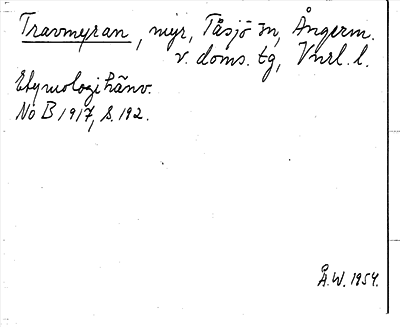 Travmyran, myr, Tåsjö sn, Ångerm.
v. doms. tg, Vnrl. l.
Etymologihänv.
NoB 1917, s. 192.
Å.W. 1954.